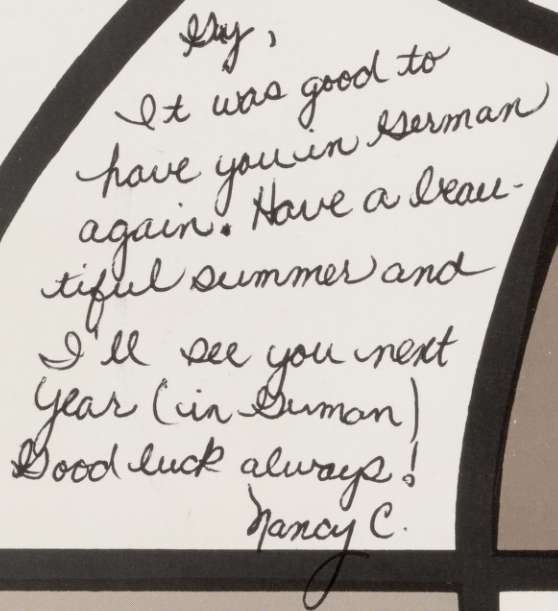 Gy,
It was good to
have you in German
again. Have a beau-
tiful summer and
I'll see you next
year (in German)
Good luck always!
Nancy C.